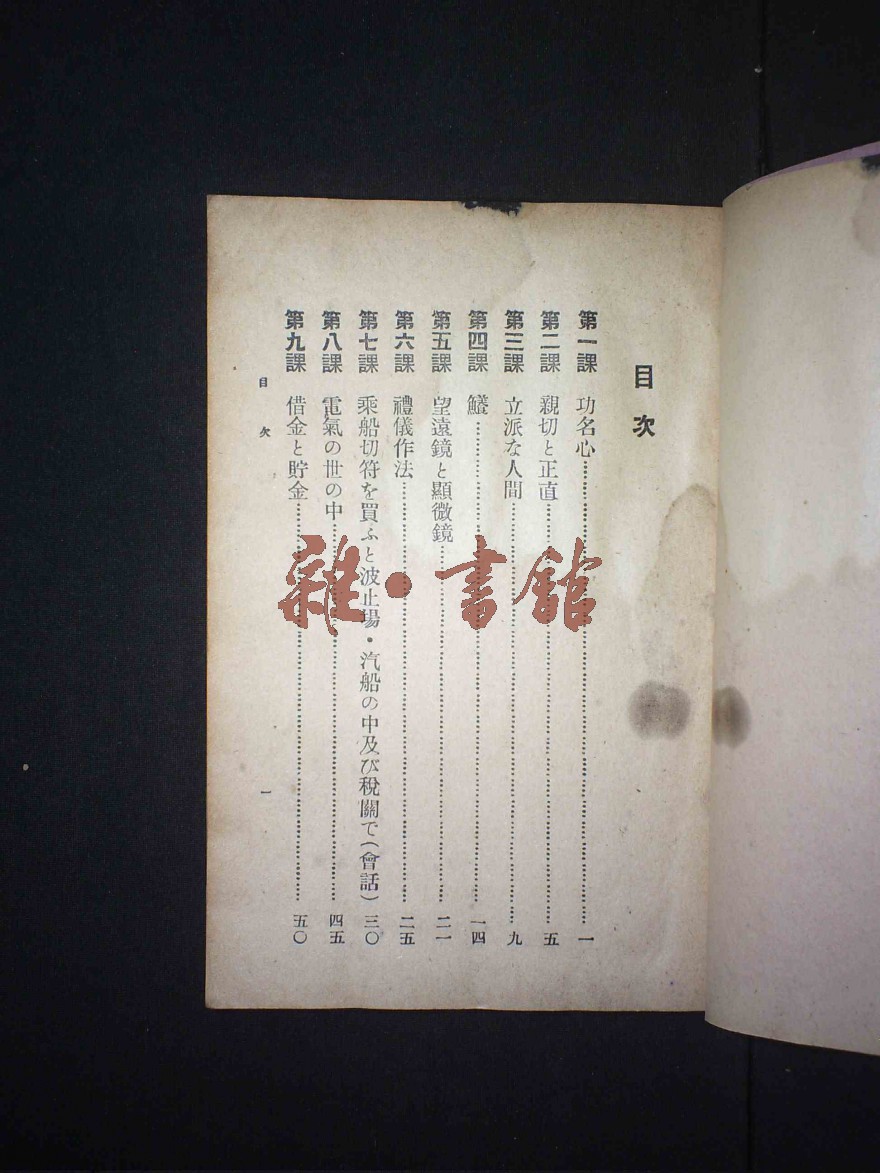 目次
第一課 功名心 一
第二課 親切と正直 五
第三課 立派な人間 九
第四課 一四
第五課 望遠鏡と顯微鏡 二一
第六課 禮儀作法 二五
第七課 乘船切符を買ふと波止場・汽船の中及び稅關で(會話) 三〇
第八課 電氣の世の中 四五
第九課 借金と貯金 五〇
目次 一
雜·書館